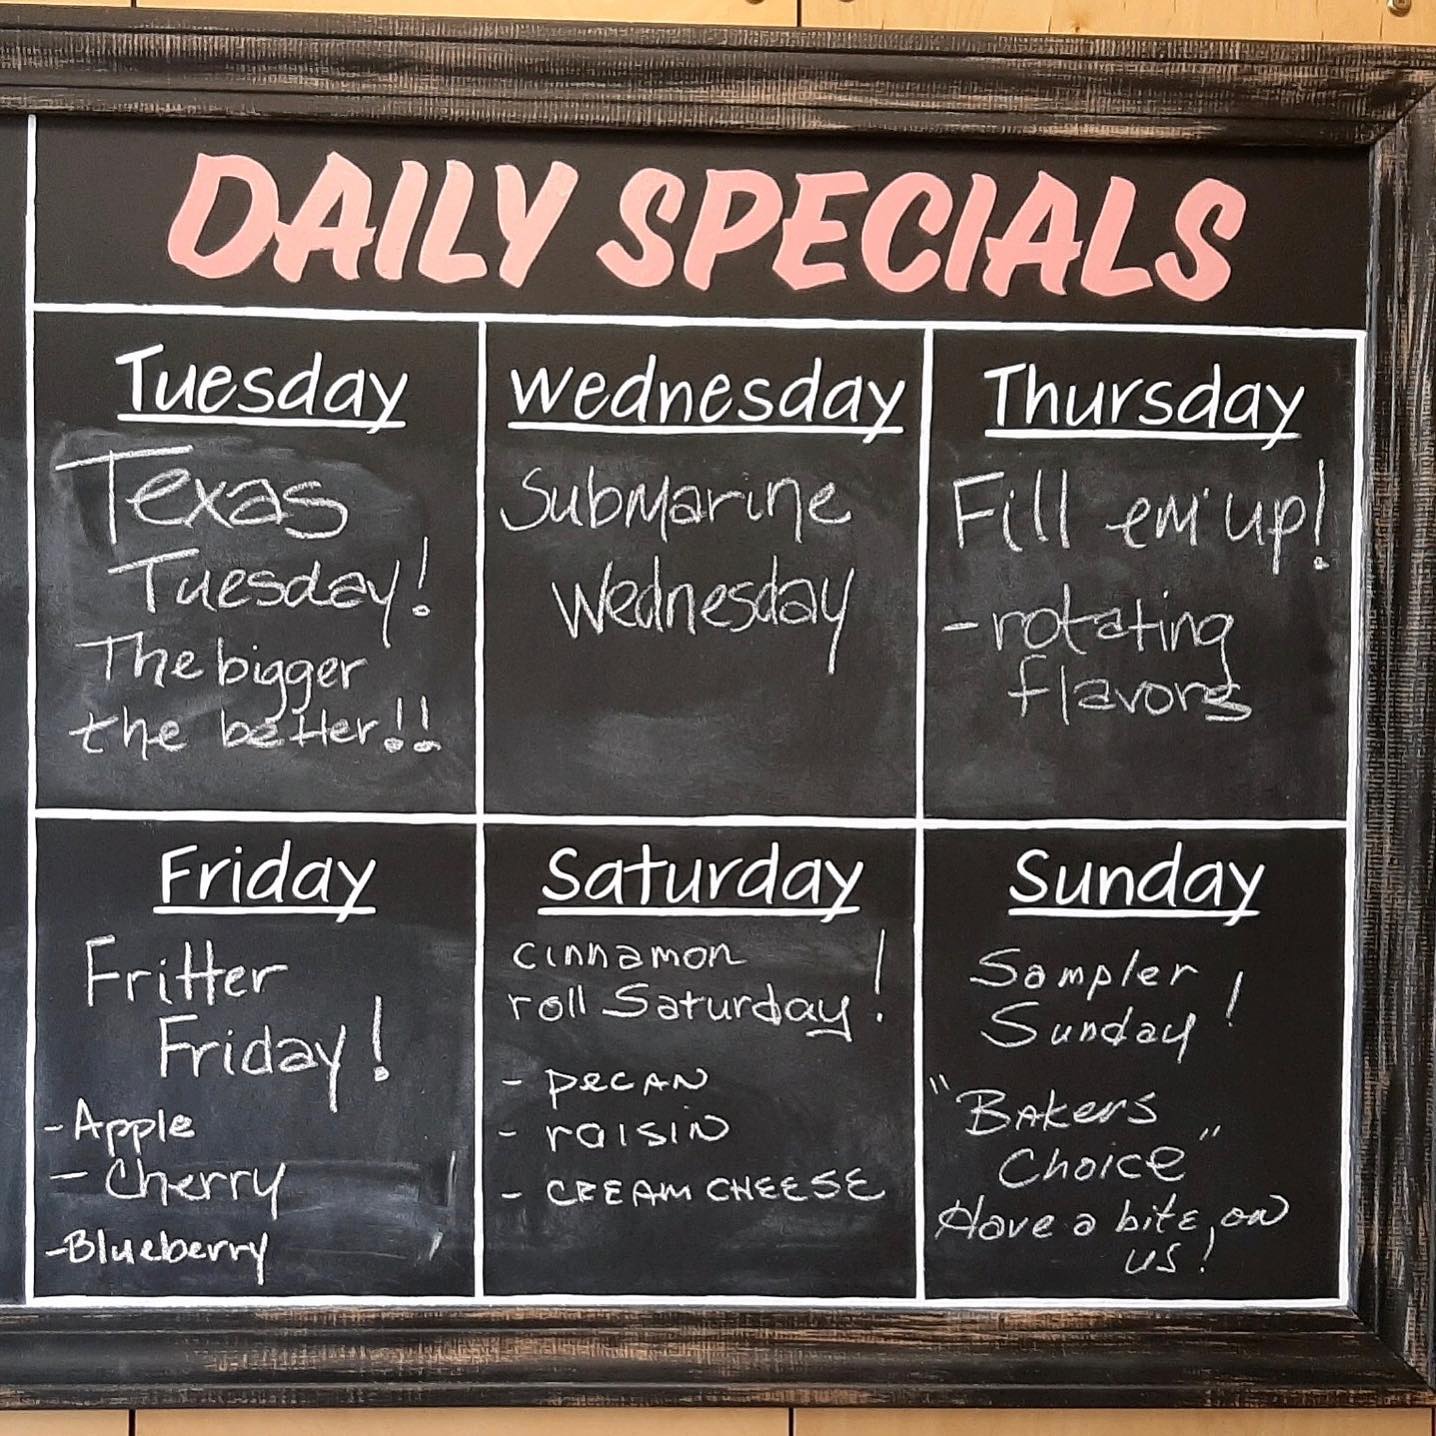 DAILY SPECIALS
Tuesday
Texas
Tuesday!
The bigger
the better!!
Wednesday
Submarine
Wednesday
Thursday
Fill em' up!
- rotating
flavors
Friday
Fritter
Friday!
- Apple
- Cherry
- Blueberry
Saturday
cinnamon
roll Saturday!
- pecan
- raisin
- CREAM CHEESE
Sunday
Sampler
Sunday!
"Bakers
Choice"
Have a bite, on
us!